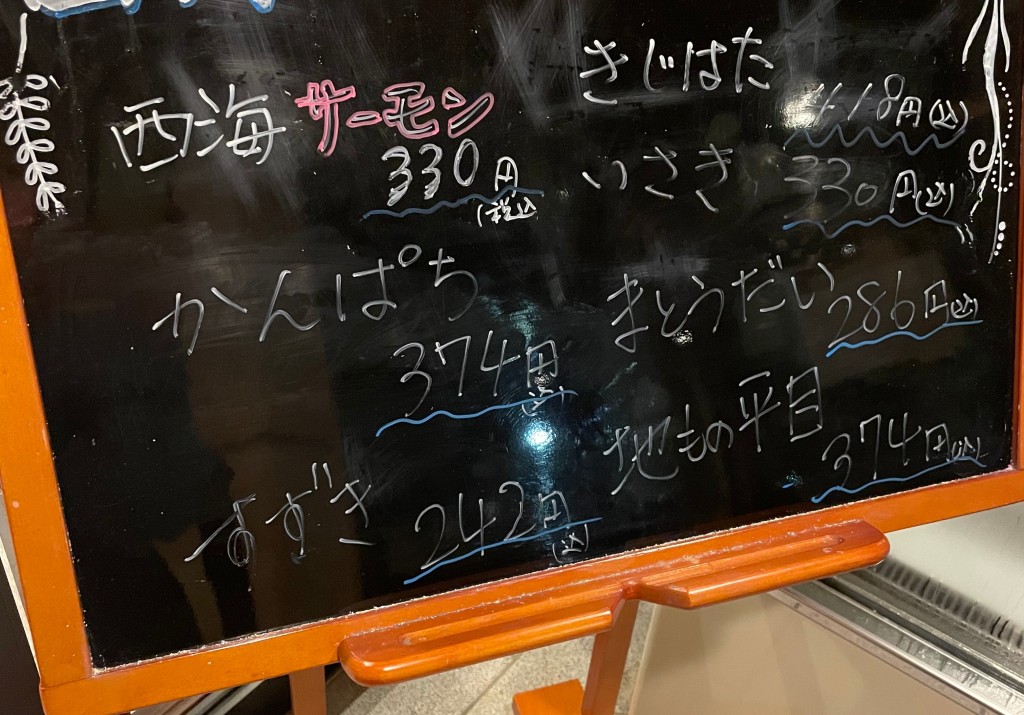 西海サーモン
330円
(税込
かんぱち
374円
すずき
242円
(込)
きじはた
418円(込)
いさき
330円(込)
まとうだい
286円(込)
地もの平目
374円(込)